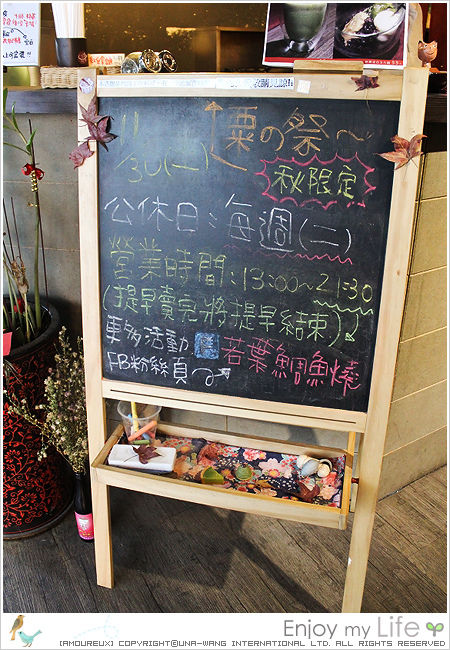 栗の祭~
11/30(一)
秋限定
公休日：每週(二)
營業時間：13:00~21:30
(提早賣完將提早結束)
更多活動
FB粉絲頁
若葉鯛魚燒
Enjoy my Life
[AMOUREUX] COPYRIGHT©UNA-WANG INTERNATIONAL LTD. ALL RIGHTS RESERVED